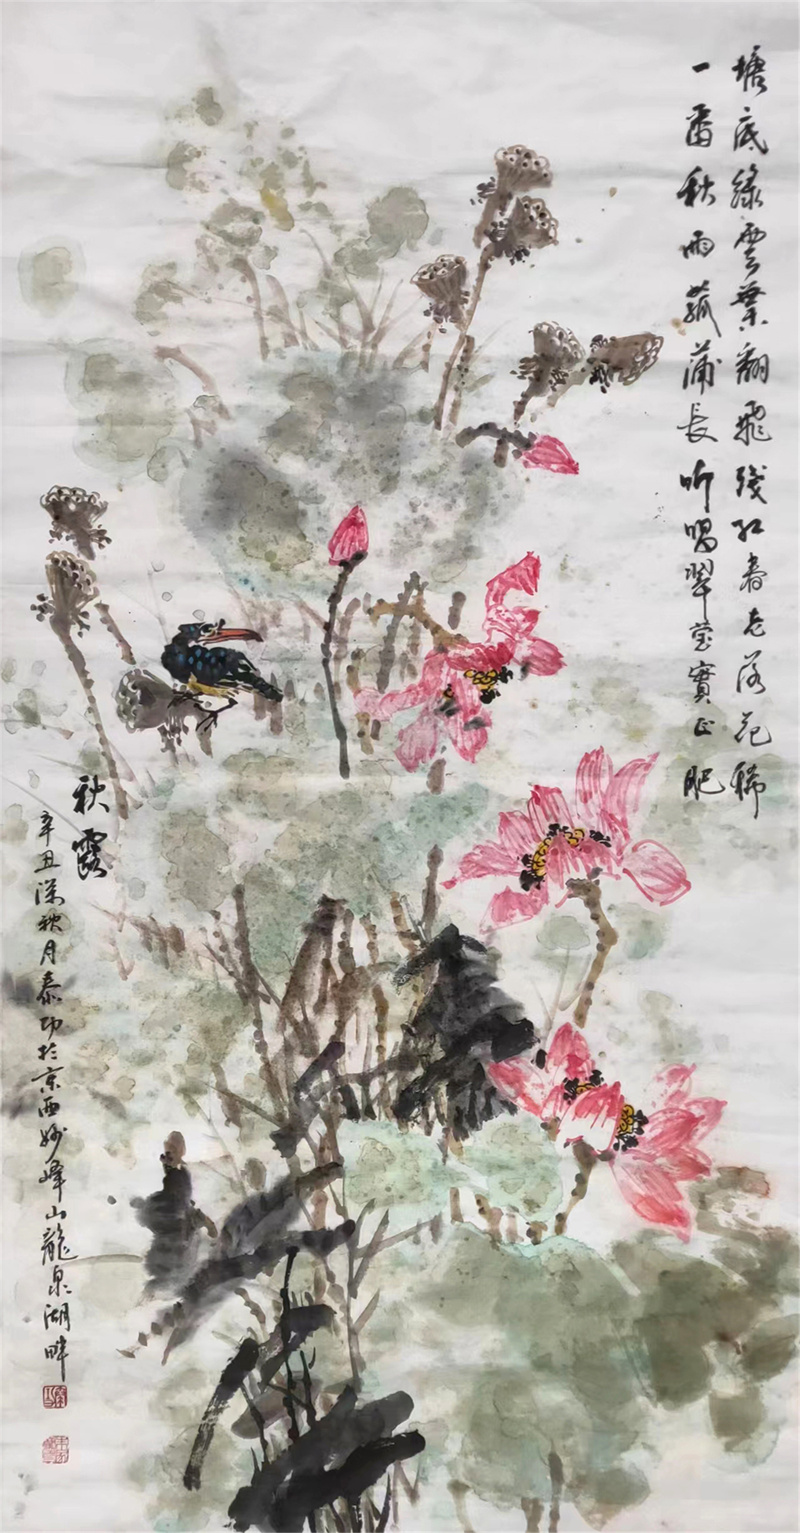 塘底綠雲葉翻飛殘紅春老落花稀
一番秋雨菰蒲長听唱翠莹實正肥
秋露
辛丑深秋月泰功於京西妙峰山龍泉湖畔